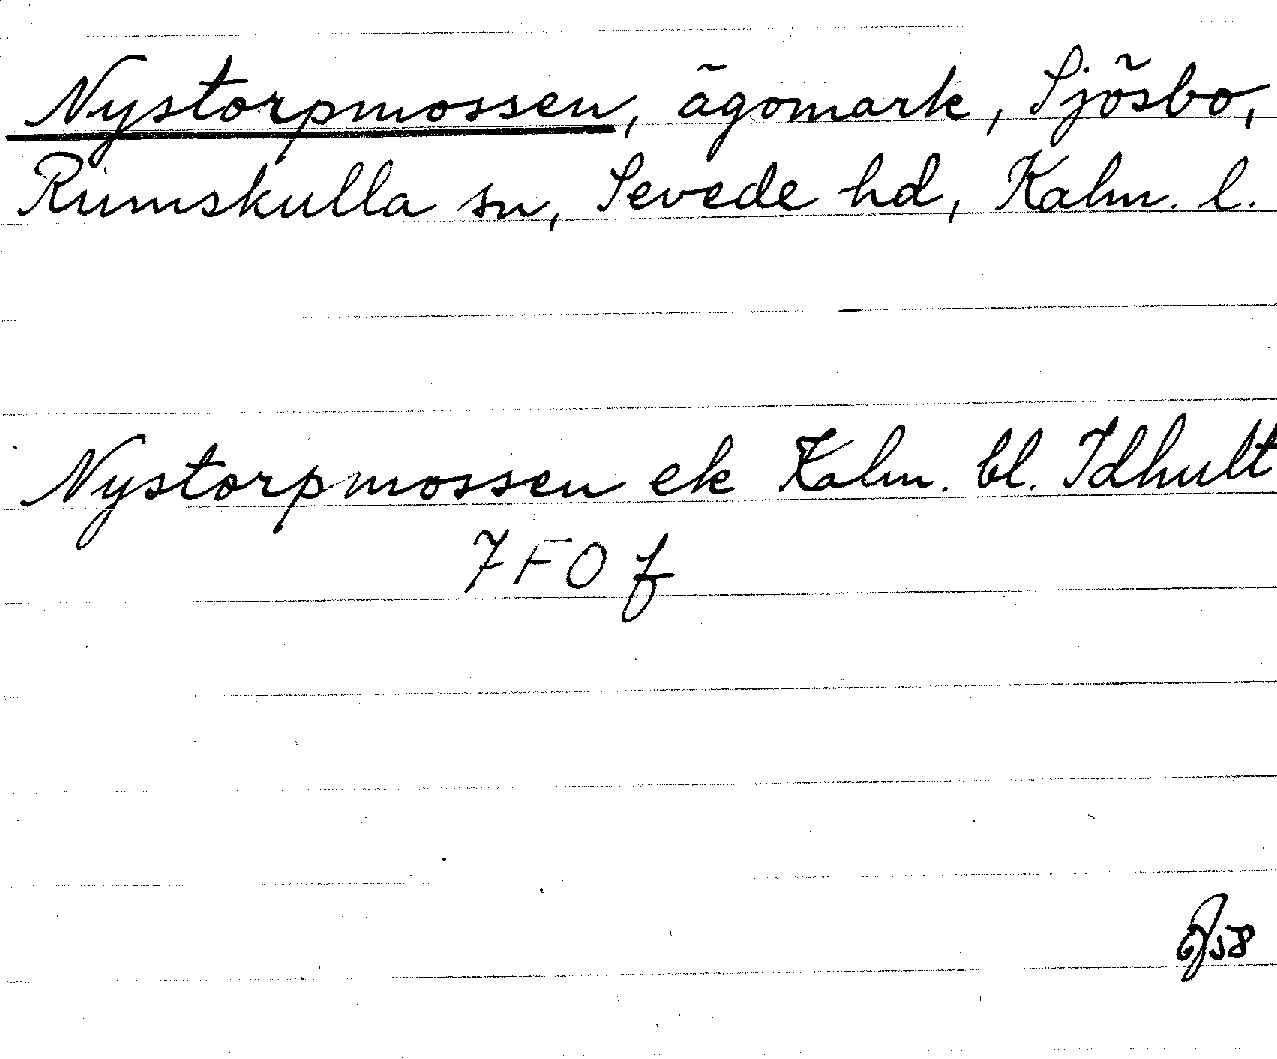 Nystorpmossen, ägomark, Sjösbo,
Rumskulla sn, Sevede hd, Kalm. l.
Nystorpmossen ek Kalm. bl. Idhult
7 F 0 f
58